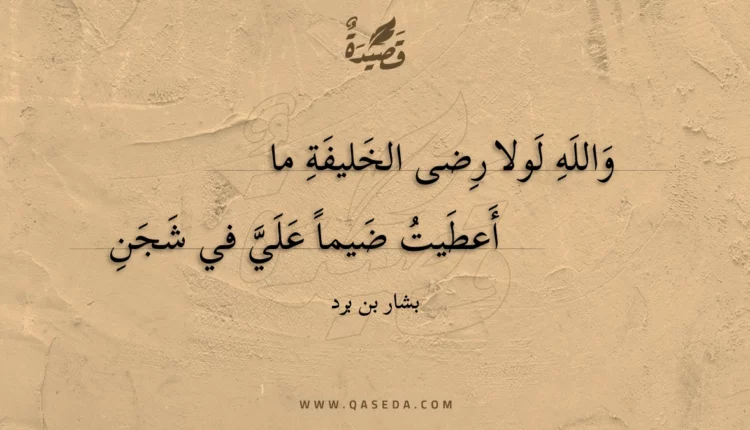 قَصِيدَةٌ
وَاللَهِ لَولا رِضى الخَليفَةِ ما
أَعطَيتُ ضَيماً عَلَيَّ في شَجَنِ
بشار بن برد
WWW.QASEDA.COM